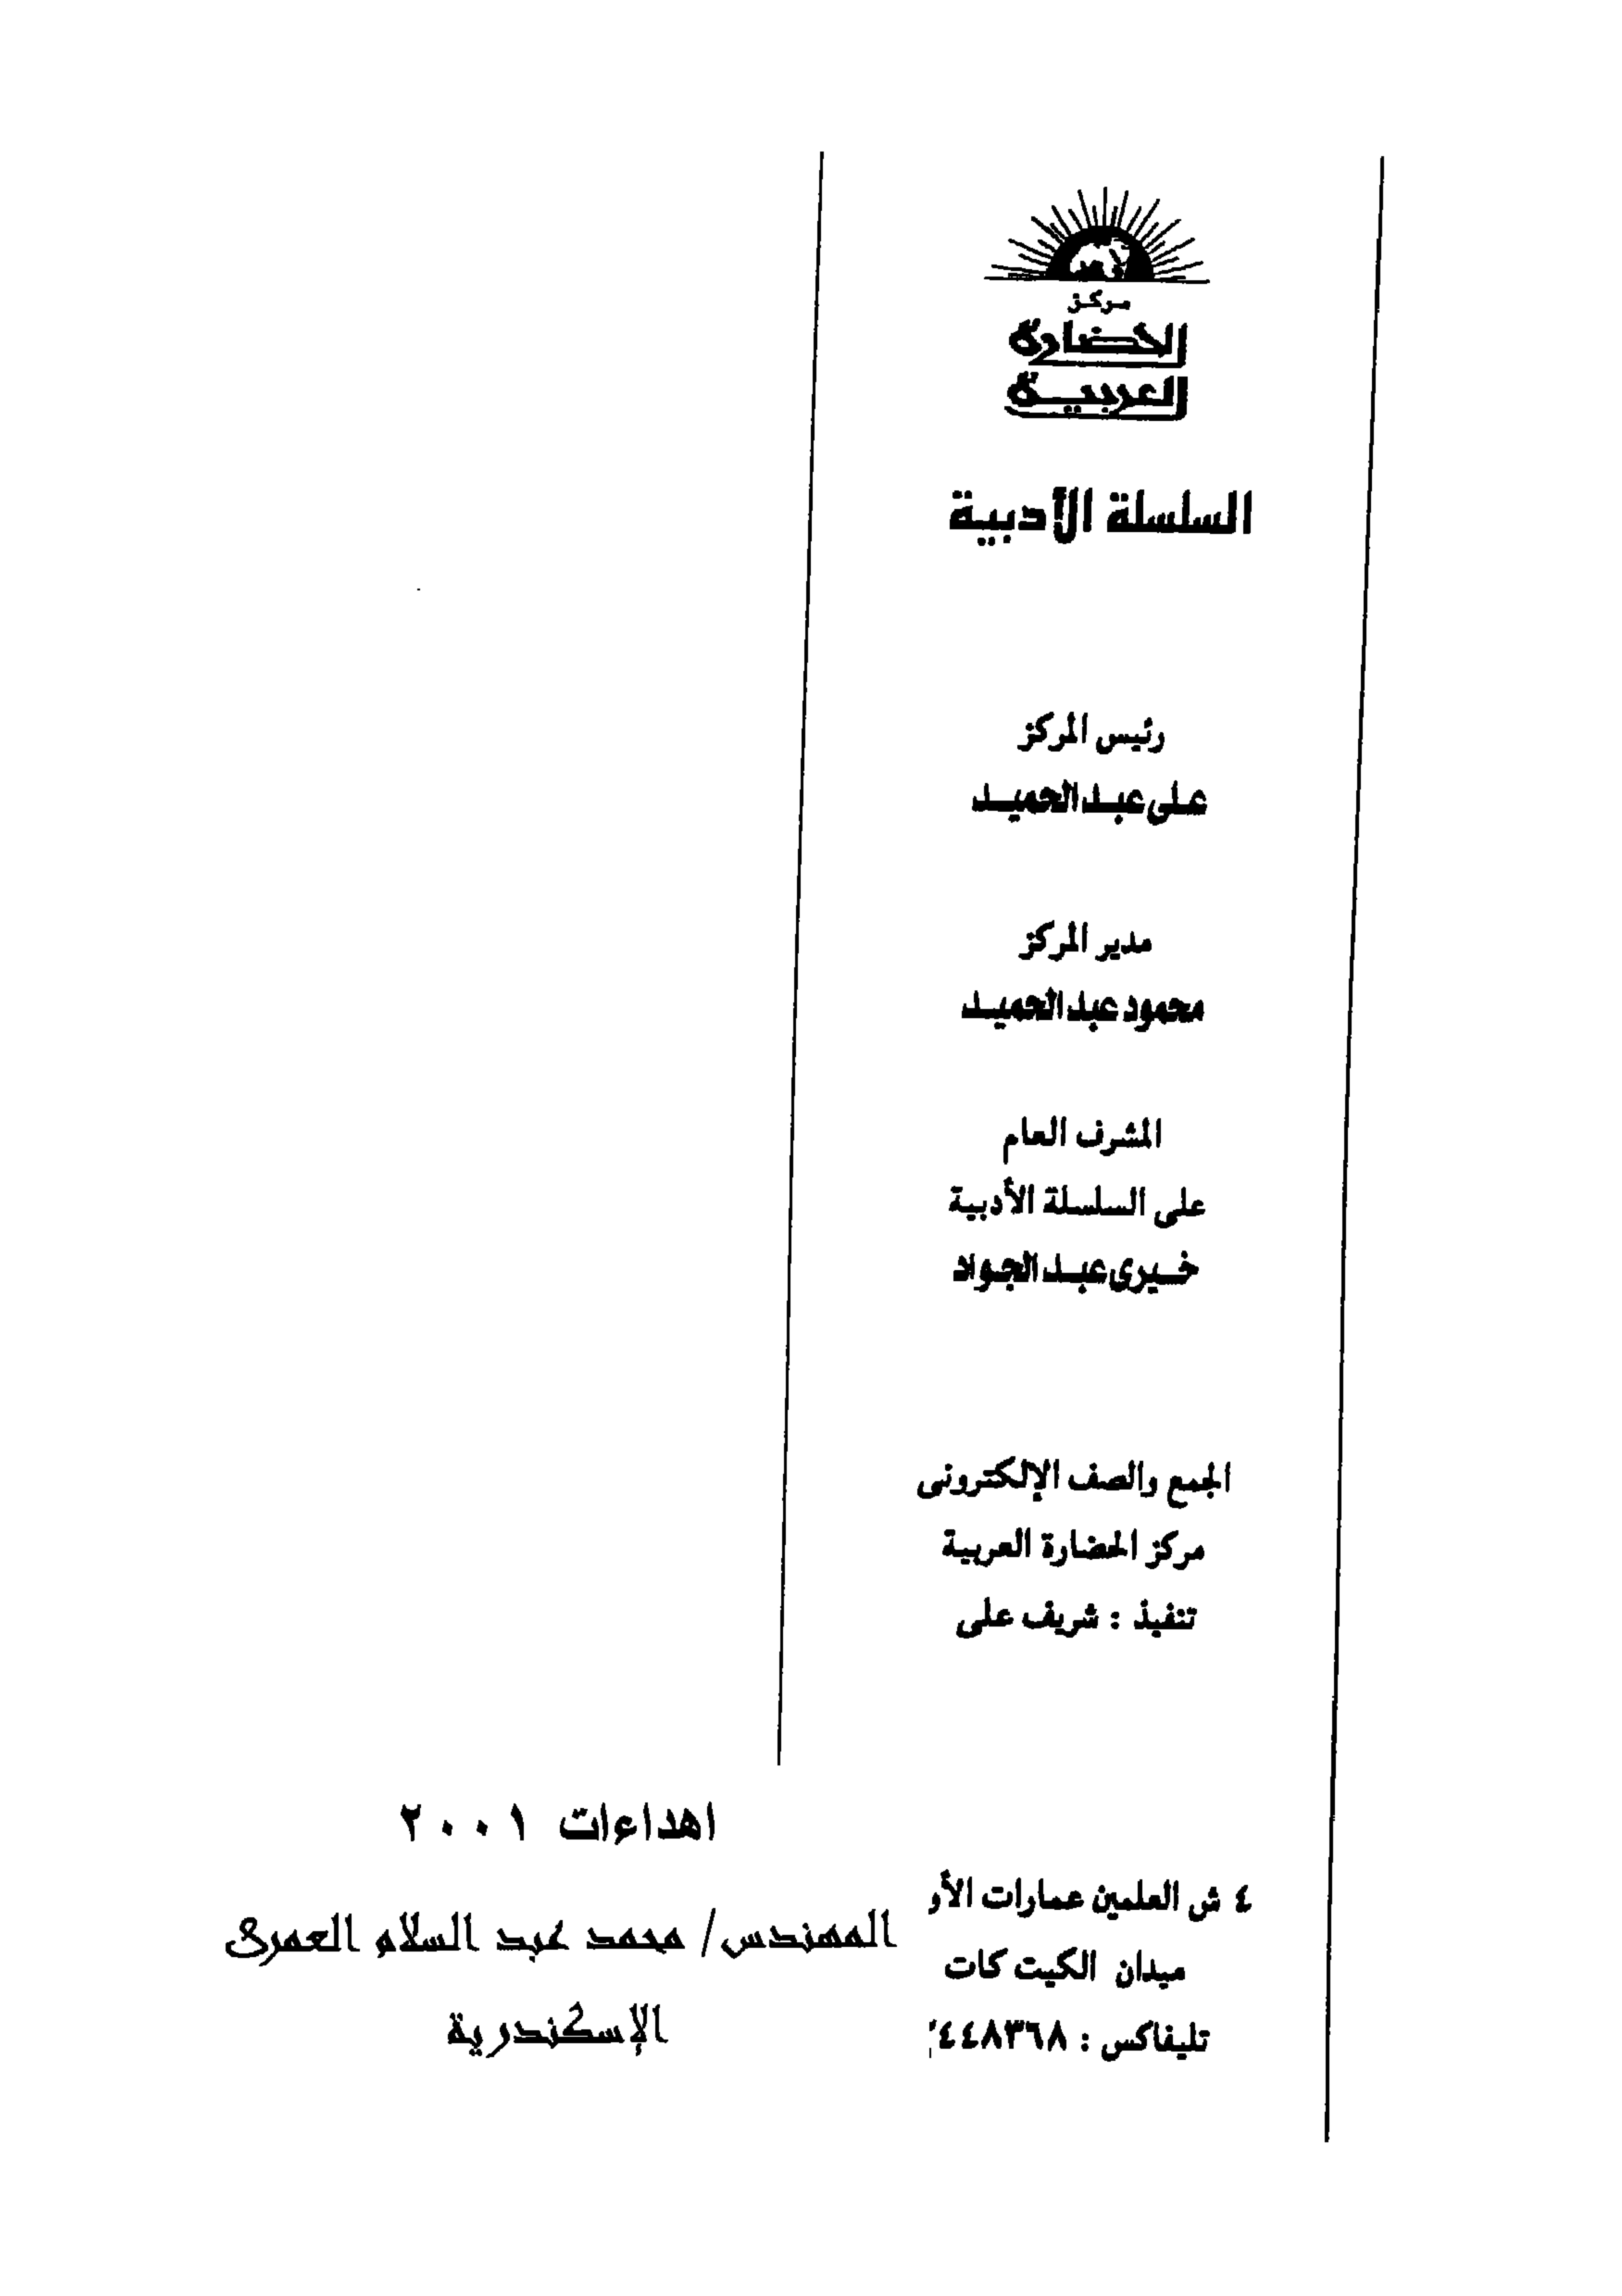 مركز
الحضارة
العربية
السلسلة الأدبية
رئيس المركز
على عبد الحميد
مدير المركز
محمود عبد الحميد
المشرف العام
على السلسلة الأدبية
خيرى عبد الجواد
الجمع والصف الإلكترونى
مركز الحضارة العربية
تنفيذ : شريف على
٤ ش العلمين عمارات الأو
ميدان الكيت كات
تليفاكس : ٤٤٨٣٦٨
اهداءات ٢٠٠١
المهندس/ محمد عبد السلام العمرى
الإسكندرية